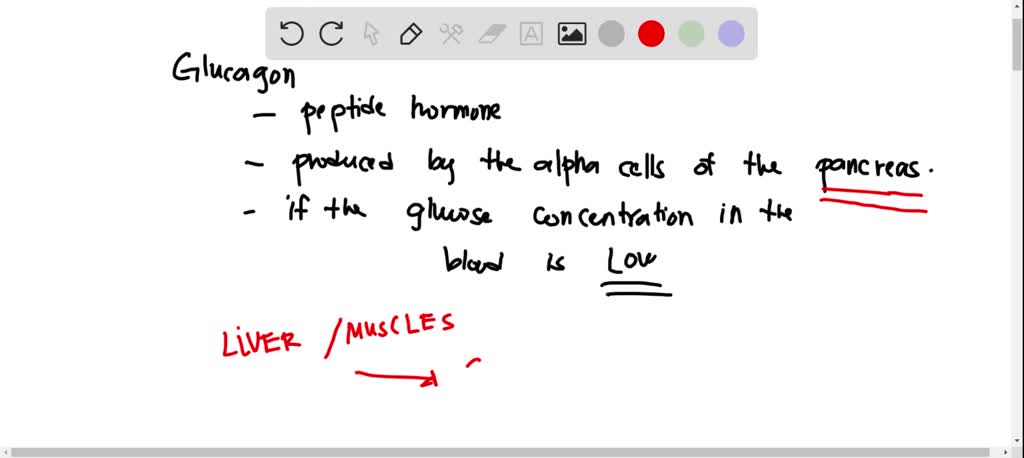 Glucagon
– peptide hormone
– produced by the alpha cells of the pancreas.
- if the glucose concentration in the
blood is Low
LiVER / MUSCLES